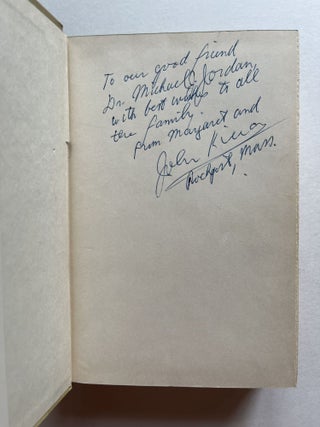 To our good friend
Dr. Michael Jordan,
with best wishes to all
the family.
from Margaret and
John Kieran
Rockport, Mass.